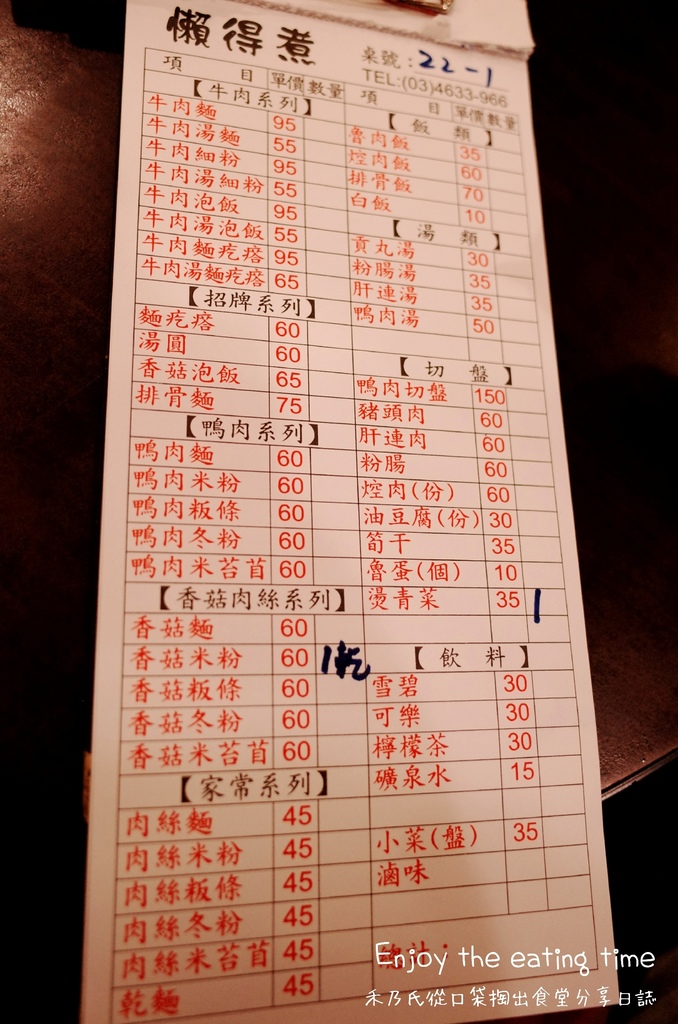 懶得煮
桌號：22-1
TEL:(03)4633-966
項 目 單價 數量
【牛肉系列】
牛肉麵 95
牛肉湯麵 55
牛肉細粉 95
牛肉湯細粉 55
牛肉泡飯 95
牛肉湯泡飯 55
牛肉麵疙瘩 95
牛肉湯麵疙瘩 65
【招牌系列】
麵疙瘩 60
湯圓 60
香菇泡飯 65
排骨麵 75
【鴨肉系列】
鴨肉麵 60
鴨肉米粉 60
鴨肉粄條 60
鴨肉冬粉 60
鴨肉米苔苜 60
【香菇肉絲系列】
香菇麵 60
香菇米粉 60 1乾
香菇粄條 60
香菇冬粉 60
香菇米苔苜 60
【家常系列】
肉絲麵 45
肉絲米粉 45
肉絲粄條 45
肉絲冬粉 45
肉絲米苔苜 45
乾麵 45
項 目 單價 數量
【飯 類】
魯肉飯 35
焢肉飯 60
排骨飯 70
白飯 10
【湯 類】
貢丸湯 30
粉腸湯 35
肝連湯 35
鴨肉湯 50
【切 盤】
鴨肉切盤 150
豬頭肉 60
肝連肉 60
粉腸 60
焢肉(份) 60
油豆腐(份) 30
筍干 35
魯蛋(個) 10
燙青菜 35 1
【飲 料】
雪碧 30
可樂 30
檸檬茶 30
礦泉水 15
小菜(盤) 35
滷味
總計：
Enjoy the eating time
禾乃氏從口袋掏出食堂分享日誌